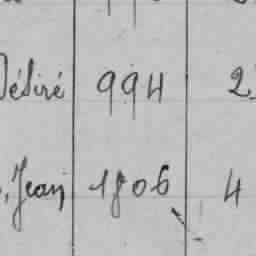 Désiré 994 2
Jean 1806 4